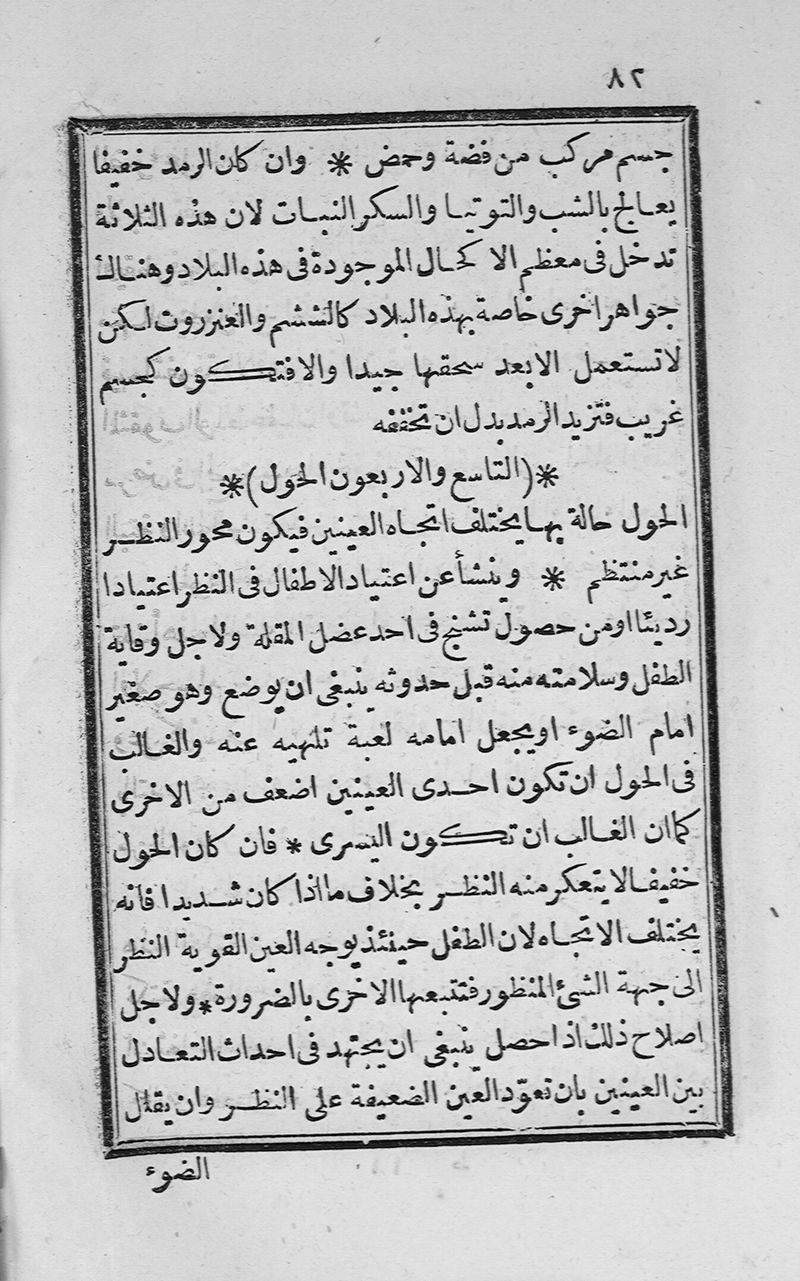 ٨٢
جسم مركب من فضة وحمض * وان كان الرمد خفيفا
يعالج بالشب والتوتيا والسكر النبات لان هذه الثلاثة
تدخل فى معظم الاكحال الموجودة فى هذه البلاد وهناك
جواهر اخرى خاصة بهذه البلاد كالششم والعنزروت لكن
لا تستعمل الا بعد سحقها جيدا والا فتكون كجسم
غريب فتزيد الرمد بدل ان تخففه
*(التاسع والاربعون الحول)*
الحول حالة بها يختلف اتجاه العينين فيكون محور النظر
غير منتظم * وينشأ عن اعتياد الاطفال فى النظر اعتيادا
رديئا او من حصول تشنج فى احد عضل المقلة ولاجل وقاية
الطفل وسلامته منه قبل حدوثه ينبغى ان يوضع وهو صغير
امام الضوء او يجعل امامه لعبة تلهيه عنه والغالب
فى الحول ان تكون احدى العينين اضعف من الاخرى
كما ان الغالب ان تكون اليسرى * فان كان الحول
خفيفا لا يتعكر منه النظر بخلاف ما اذا كان شديدا فانه
يختلف الاتجاه لان الطفل حينئذ يوجه العين القوية النظر
الى جهة الشئ المنظور فتتبعها الاخرى بالضرورة * ولاجل
اصلاح ذلك اذا حصل ينبغى ان يجتهد فى احداث التعادل
بين العينين بان تعوّد العين الضعيفة على النظر وان يقلل
الضوء